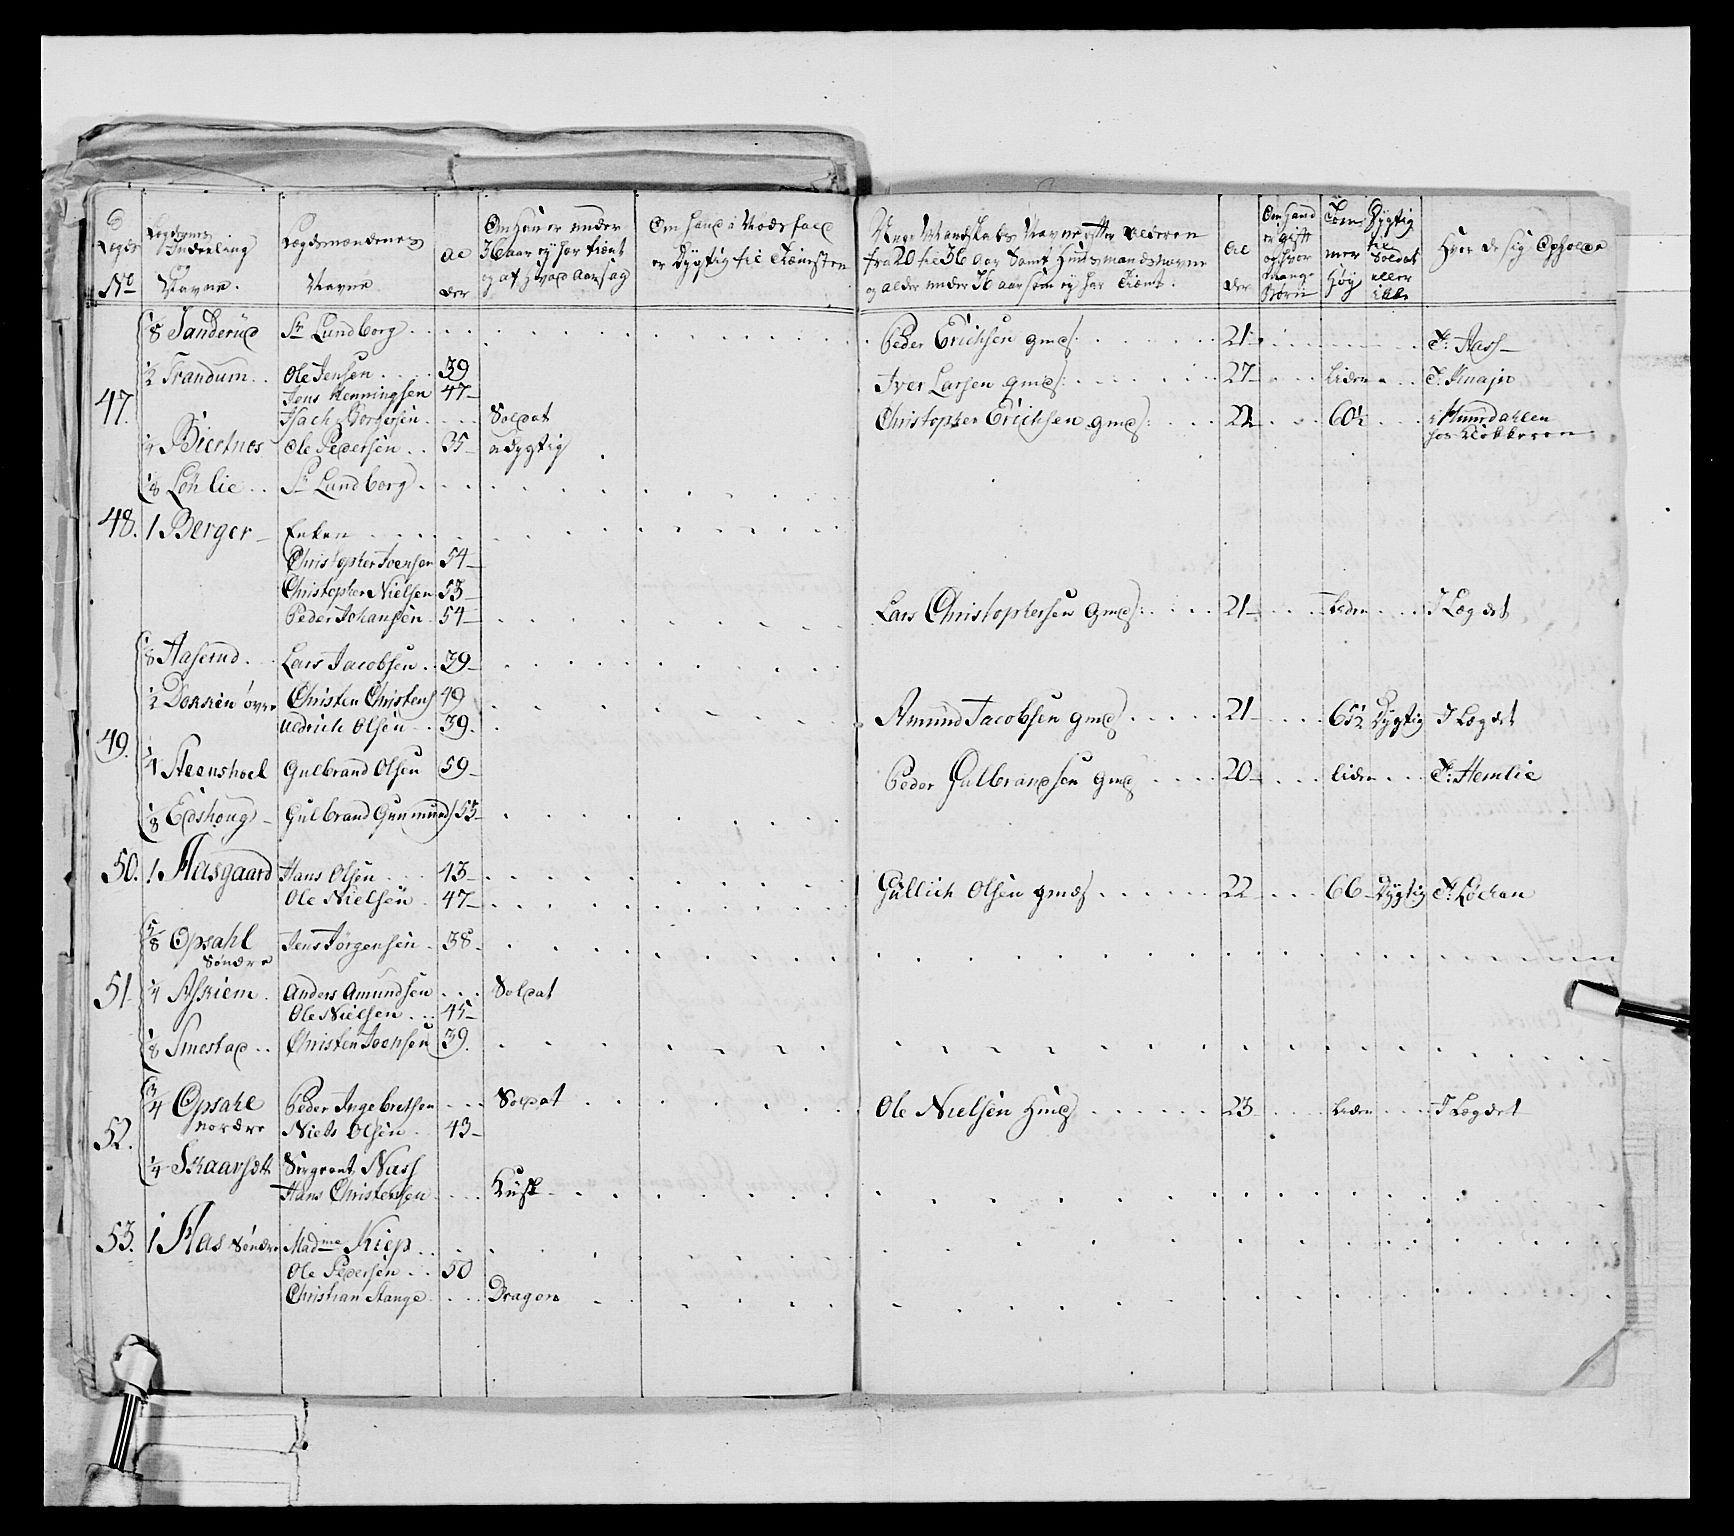 Legds No | Legdernes Inddeeling Navne. | Lægdsmændenes Navne | Al der | Om han er under 36 aar ey har tient og af hvad aarsag | Om hand i Nødsfald er Dygtig til Tienisten | Unge Mandskabs Navne efter Alderen fra 20 til 36 aar Samt Huusmænds navne og alder under 36 aar som ey har Tient. | Al der | Om hand er gift og hvor mange Børn | Tom mer høy | Dygtig til Soldat eller ikke | Hvor de sig Opholder
47. | 1/8 Sanderud | Sr Lundborg | Peder Erichsen gmd: | 21 | I: Aass
1/2 Trandum | Ole Jensen | 39 | Iver Larsen gmd: | 27 | liden | I:
Jens Henningsen | 47
Isach Borgersen | Soldat | Christopher Erichsen gmd: | 22 | 60 1/2 | i Numdahlen hos Klokkeren
1/4 Biertnes | Ole Pedersen | 35 | udygtig
1/8 Lønlie | Sr Lundborg
48. | 1 Berger | Enken
Christopher Joensen | 54
Christopher Nielsen | 53
Peder Johansen | 54 | Lars Christophersen gmd: | 21 | liden | I Lægdet
49. | 1/8 Aaserud | Lars Jacobsen | 39
1/2 Dokken øvre | Christen Christens | 49
Uldrich Olsen | 39 | Amund Jacobsen gmd | 21 | 65 1/2 | Dygtig | I Lægdet
1/4 Steenshoel | Gulbrand Olsen | 59 | Peder Gulbrandsen gmd | 20 | liden | I: Hemlie
1/8 Edshoug | Gulbrand Gunmunds | 55
50. | 1 Aasgaard | Hans Olsen | 43
Ole Nielsen | 47 | Gullich Olsen gmd | 22 | 66 | Dygtig | I: Løchen
51 | 5/8 Opsahl Søndre | Jens Jørgensen | 38
1/4 Askiem | Anders Amundsen | Soldat
Ole Nielsen | 45
1/8 Smestad | Christen Joensen | 39
52. | 3/4 Opsahl nordre | Peder Ingebretsen | Soldat | Ole Nielsen Hmd | 23 | liden | I Lægdet
Niels Olsen | 43
1/4 Skaarsett | Sergeant Næss
Hans Christensen | Kusk
53. | 1 Aas Søndre | Madme Kiep
Ole Pedersen | 50
Christian Stange | Dragon